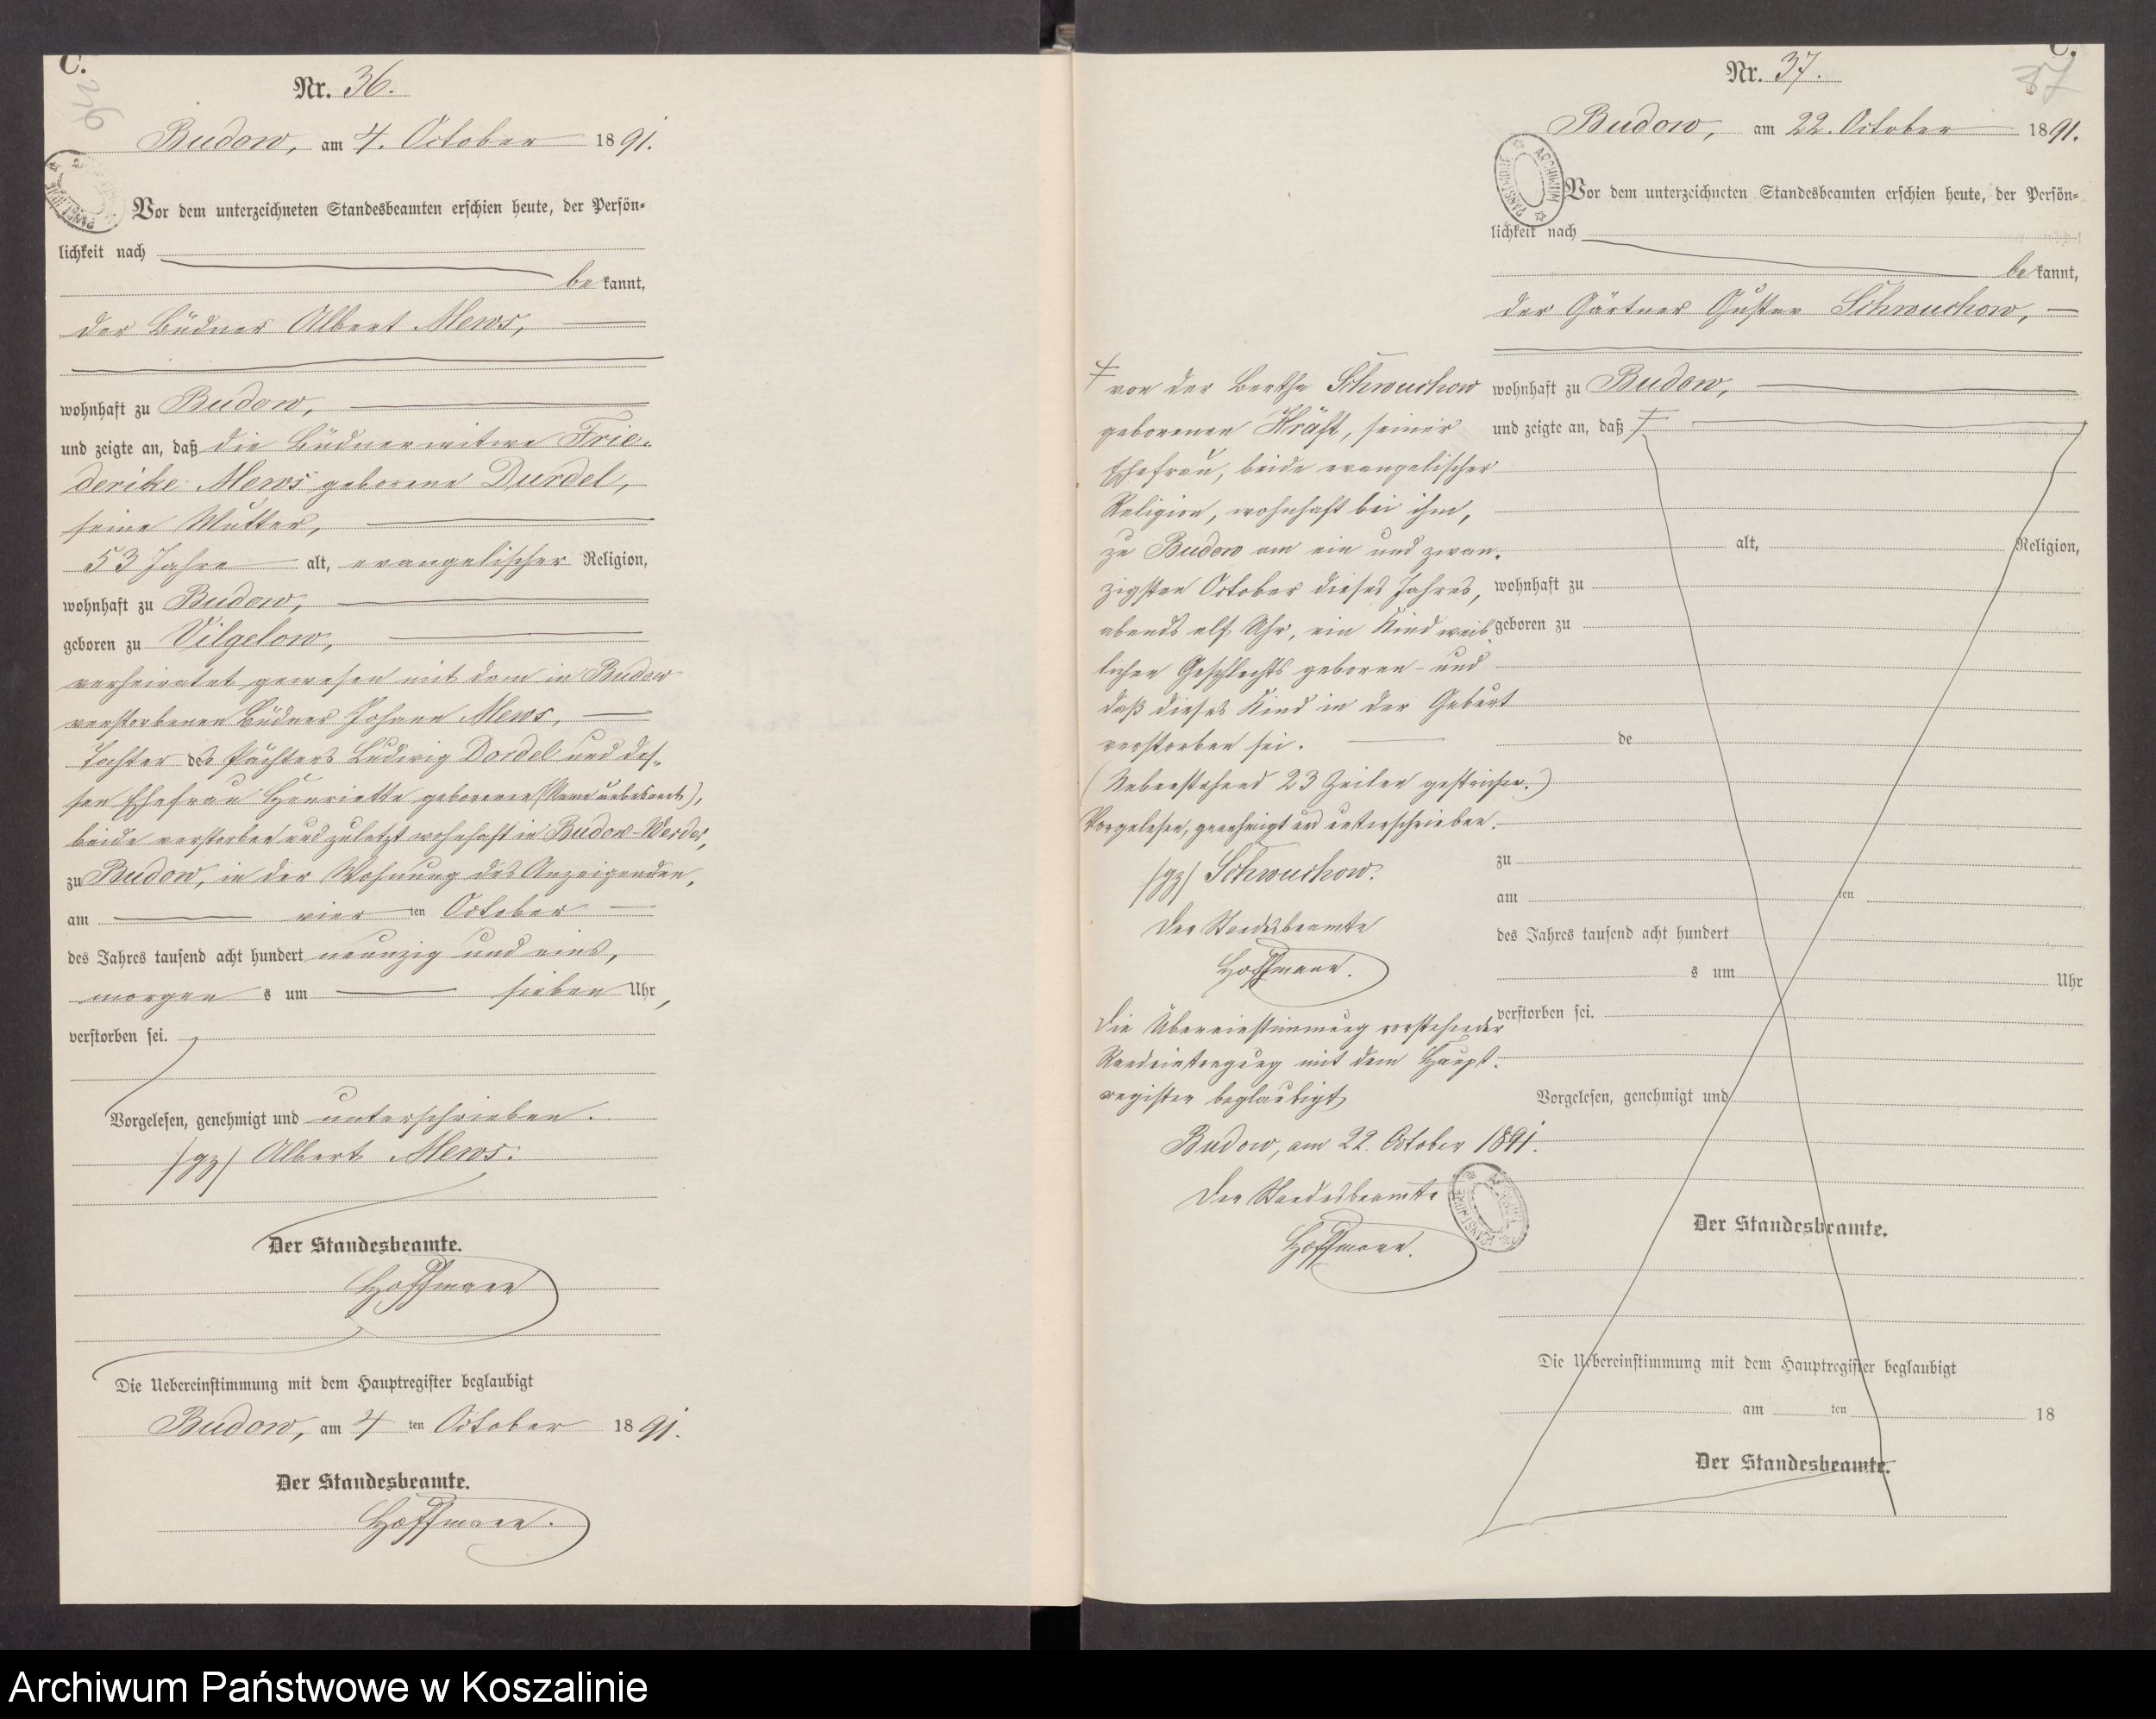 C.
Nr. 36.
Budow, am 4. October 1891.
Vor dem unterzeichneten Standesbeamten erschien heute, der Persön-
lichkeit nach
bekannt,
der Büdner Albert Mews,
wohnhaft zu Budow,
und zeigte an, daß die Büdnerwitwe Frie-
derike Mews geborene Durdel,
seine Mutter,
53 Jahre alt, evangelischer Religion,
wohnhaft zu Budow,
geboren zu Vilgelow,
verheiratet gewesen mit dem in Budow
verstorbenen Büdner Johann Mews,
Tochter des Pächters Ludwig Dordel und des-
sen Ehefrau Henriette geborenen (Name unbekannt),
beide verstorben und zuletzt wohnhaft in Budow-Werder,
zu Budow, in der Wohnung des Anzeigenden,
am vierten October
des Jahres tausend acht hundert neunzig und eins,
morgens um sieben Uhr,
verstorben sei.
Vorgelesen, genehmigt und unterschrieben.
/gz/ Albert Mews.
Der Standesbeamte.
Hoffmann
Die Uebereinstimmung mit dem Hauptregister beglaubigt
Budow, am 4ten October 1891.
Der Standesbeamte.
Hoffmann.
C.
37
Nr. 37.
Budow, am 22. October 1891.
ARCHIWUM PAŃSTWOWE
Vor dem unterzeichneten Standesbeamten erschien heute, der Persön-
lichkeit nach
bekannt,
der Gärtner Gustav Schwuchow,
wohnhaft zu Budow,
und zeigte an, daß
von der Bertha Schwuchow
geborenen Kräft, seiner
Ehefrau, beide evangelischer
Religion, wohnhaft bei ihm,
zu Budow am ein und zwan-
zigsten October dieses Jahres,
abends elf Uhr, ein Kind weib-
lichen Geschlechts geboren und
daß dieses Kind in der Geburt
verstorben sei.
(Nebenstehend 23 Zeilen gestrichen.)
Vorgelesen, genehmigt und unterschrieben.
/gz/ Schwuchow.
Der Standesbeamte
Hoffmann.
Die Übereinstimmung vorstehender
Randeintragung mit dem Haupt-
register beglaubigt
Budow, am 22. October 1891.
Der Standesbeamte
Hoffmann.
alt, Religion,
wohnhaft zu
geboren zu
de
zu
am ten
des Jahres tausend acht hundert
s um Uhr
verstorben sei.
Vorgelesen, genehmigt und
Der Standesbeamte.
Die Uebereinstimmung mit dem Hauptregister beglaubigt
am ten 18
Der Standesbeamte.
Archiwum Państwowe w Koszalinie